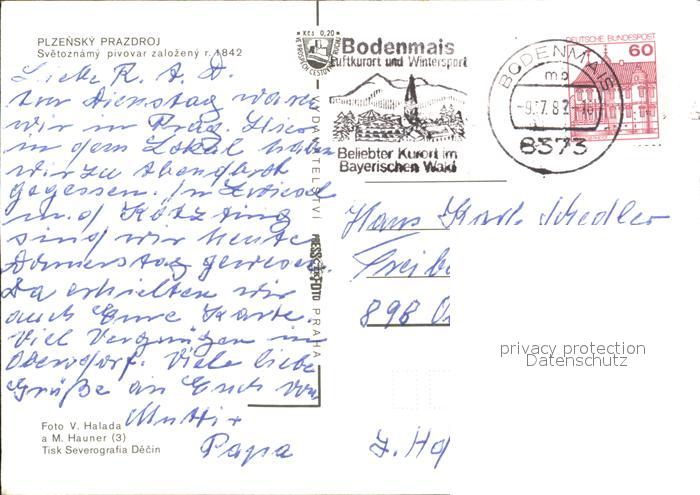 PLZEŇSKÝ PRAZDROJ
Světoznámý pivovar založený r. 1842
Liebe R. A. D.
Am Dienstag waren
wir in Prag. Hier
in dem Lokal haben
wir zu Abendbrot
gegessen. In Zwiesel
u. Kötzting
sind wir heute
Donnerstag gewesen.
Da erhielten wir
auch Eure Karte.
Viel Vergnügen in
Oberdorf. Viele liebe
Grüße an Euch von
Mutti +
Papa
Foto V. Halada
a M. Hauner (3)
Tisk Severografia Děčín
Kčs 0,20
VYDAVATELSTVÍ
PRESSFOTO
PRAHA
Bodenmais
Luftkurort und Wintersport
Beliebter Kurort im
Bayerischen Wald
BODENMAIS
mb
-9.-7.82-16
8373
DEUTSCHE BUNDESPOST
60
Hans Karl
Freib
898 O
z. H
privacy protection
Datenschutz